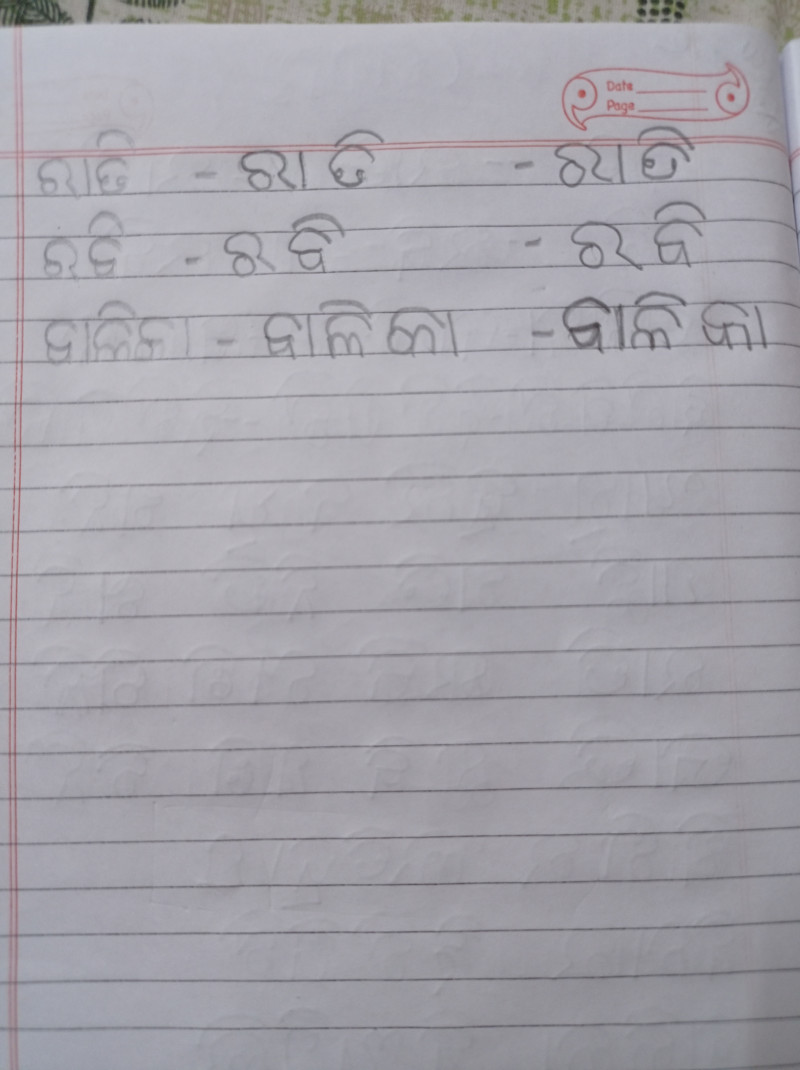 Date
Page
ରାତି - ରାତି - ରାତି
ରବି - ରବି - ରବି
ବାଳିକା - ବାଳିକା - ବାଳିକା